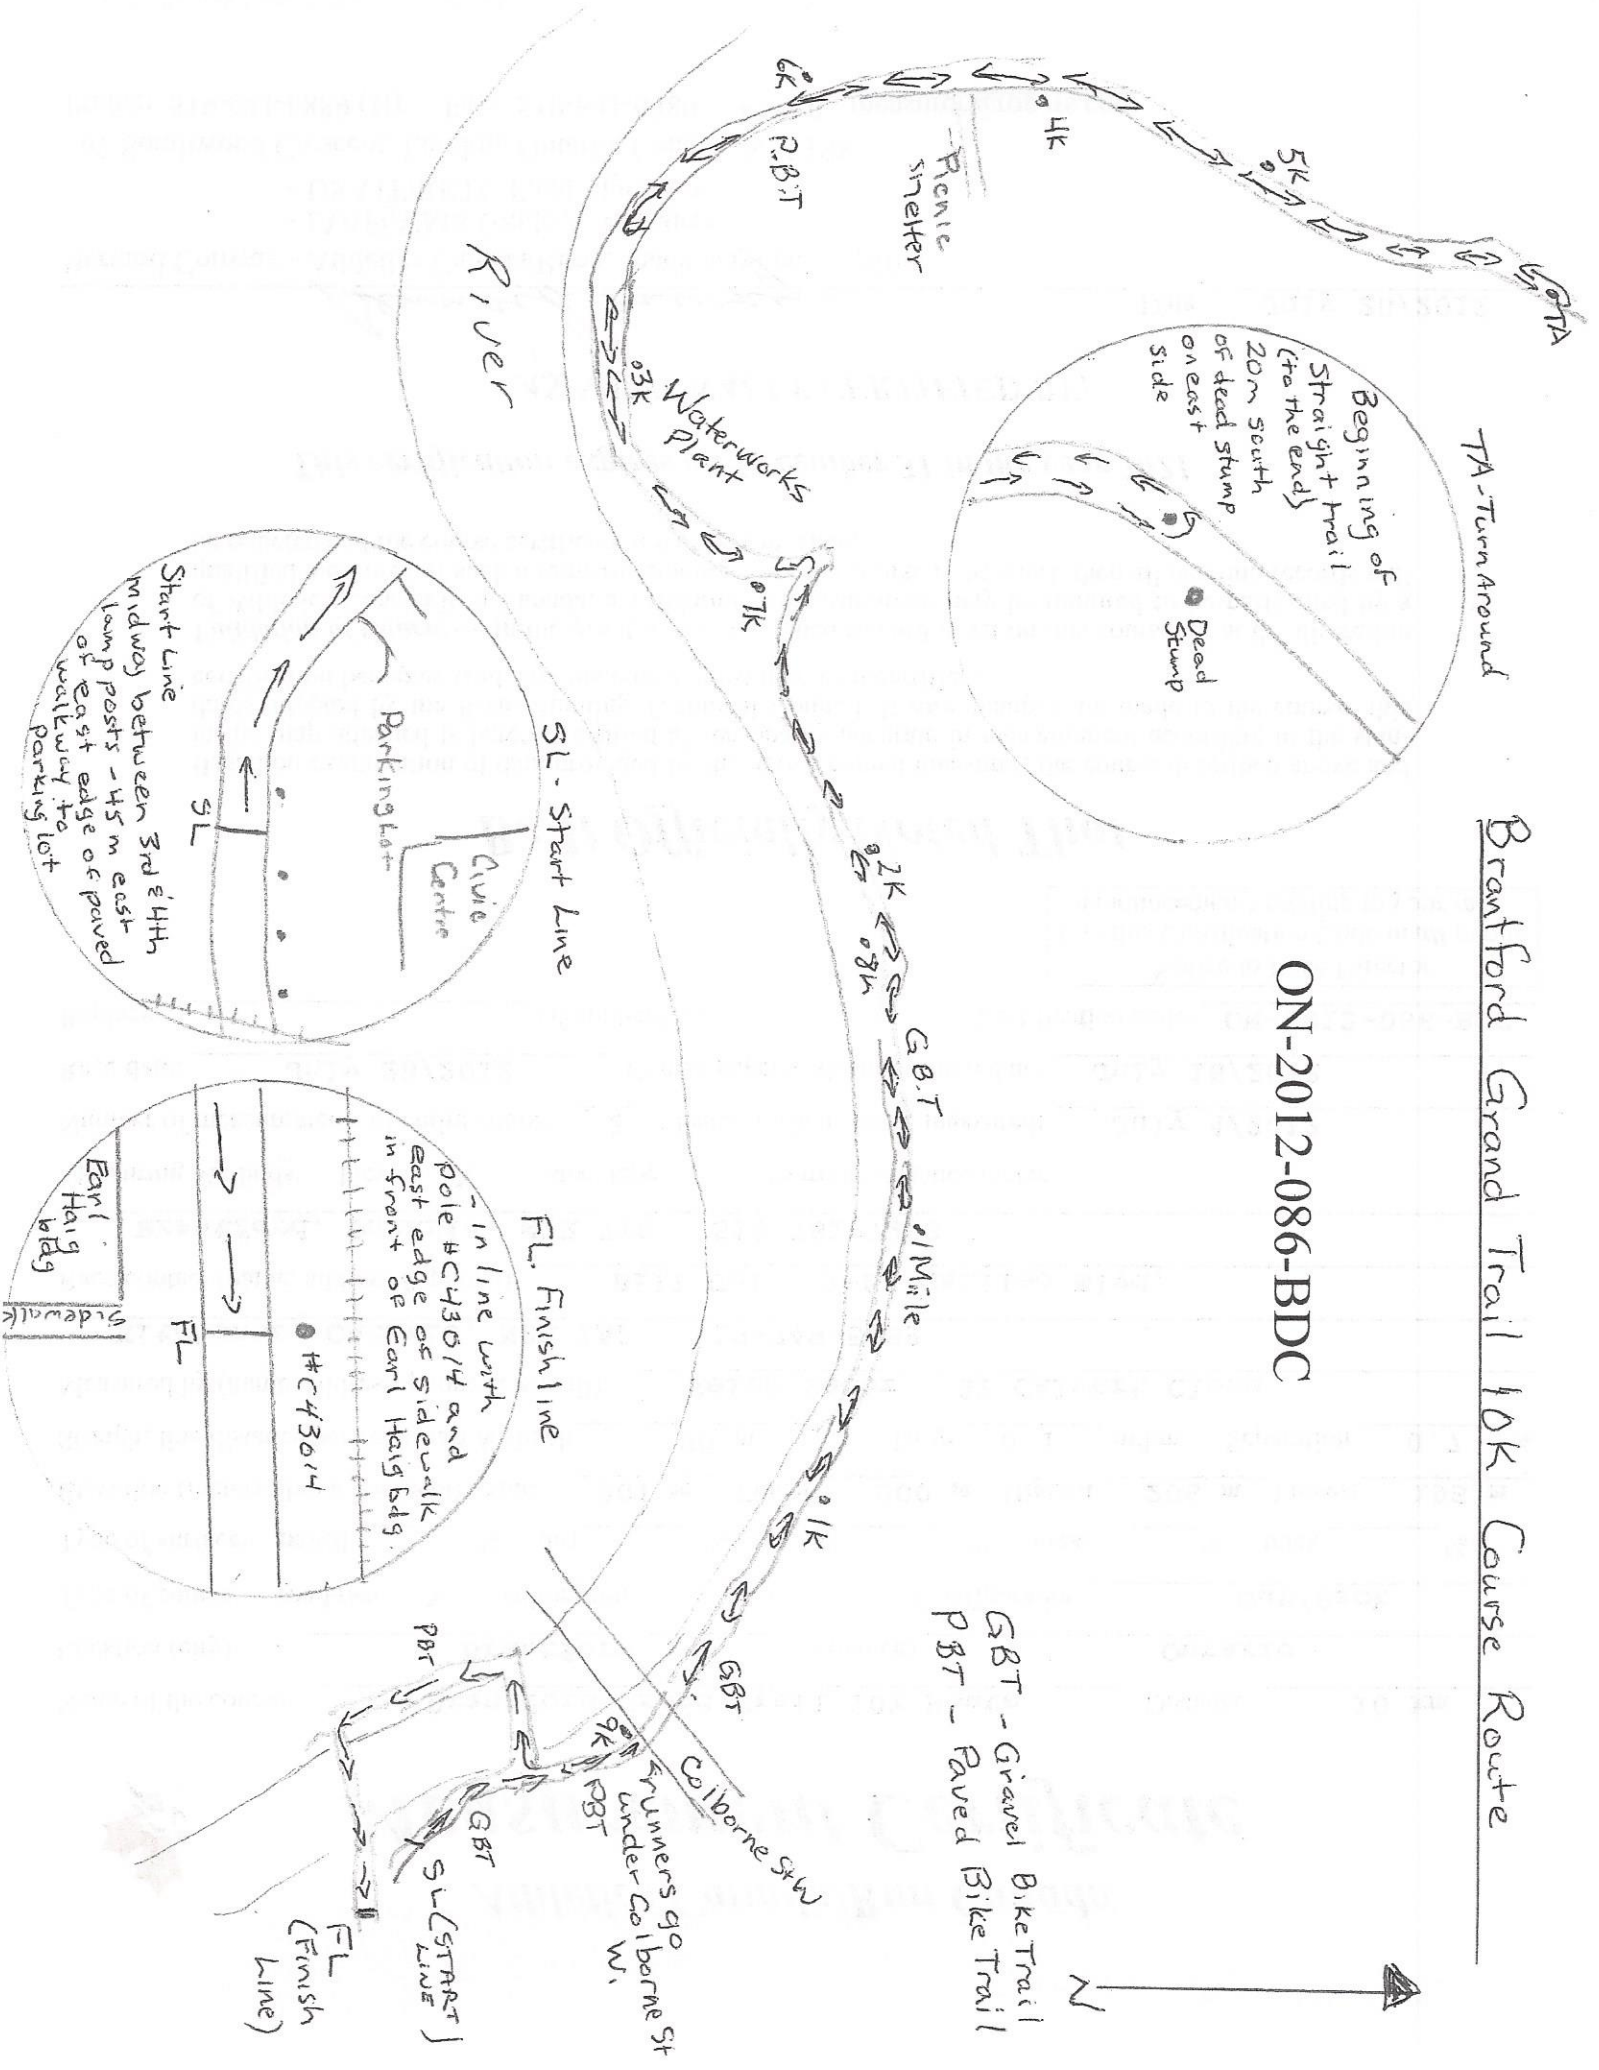 Brantford Grand Trail 10K Course Route
ON-2012-086-BDC
N
GBT - Gravel Bike Trail
PBT - Paved Bike Trail
TA - Turn Around
Beginning of
Straight trail
(to the end)
20m south
of dead stump
on east
side
Dead
Stump
TA
5K
4K
Picnic
Shelter
6K
P.B.T
River
.3K
Waterworks
Plant
.7K
2K
.8K
G.B.T
.1 Mile
.1K
GBT
Colborne St W
runners go
under Colborne St
W.
9K
PBT
GBT
PBT
SL (START
LINE)
FL
(Finish
Line)
SL - Start Line
Civic
Centre
Parking Lot
SL
Start Line
midway between 3rd & 4th
lamp posts - 45m east
of east edge of paved
walkway to
parking lot
FL. Finish line
- in line with
pole #C43014 and
east edge of sidewalk
in front of Earl Haig Bdg
#C43014
FL
Earl
Haig
bldg
Sidewalk